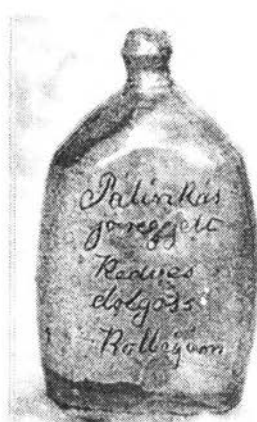 Pálinkás
jóreggelt
Kedves
dolgoss
Kollegám